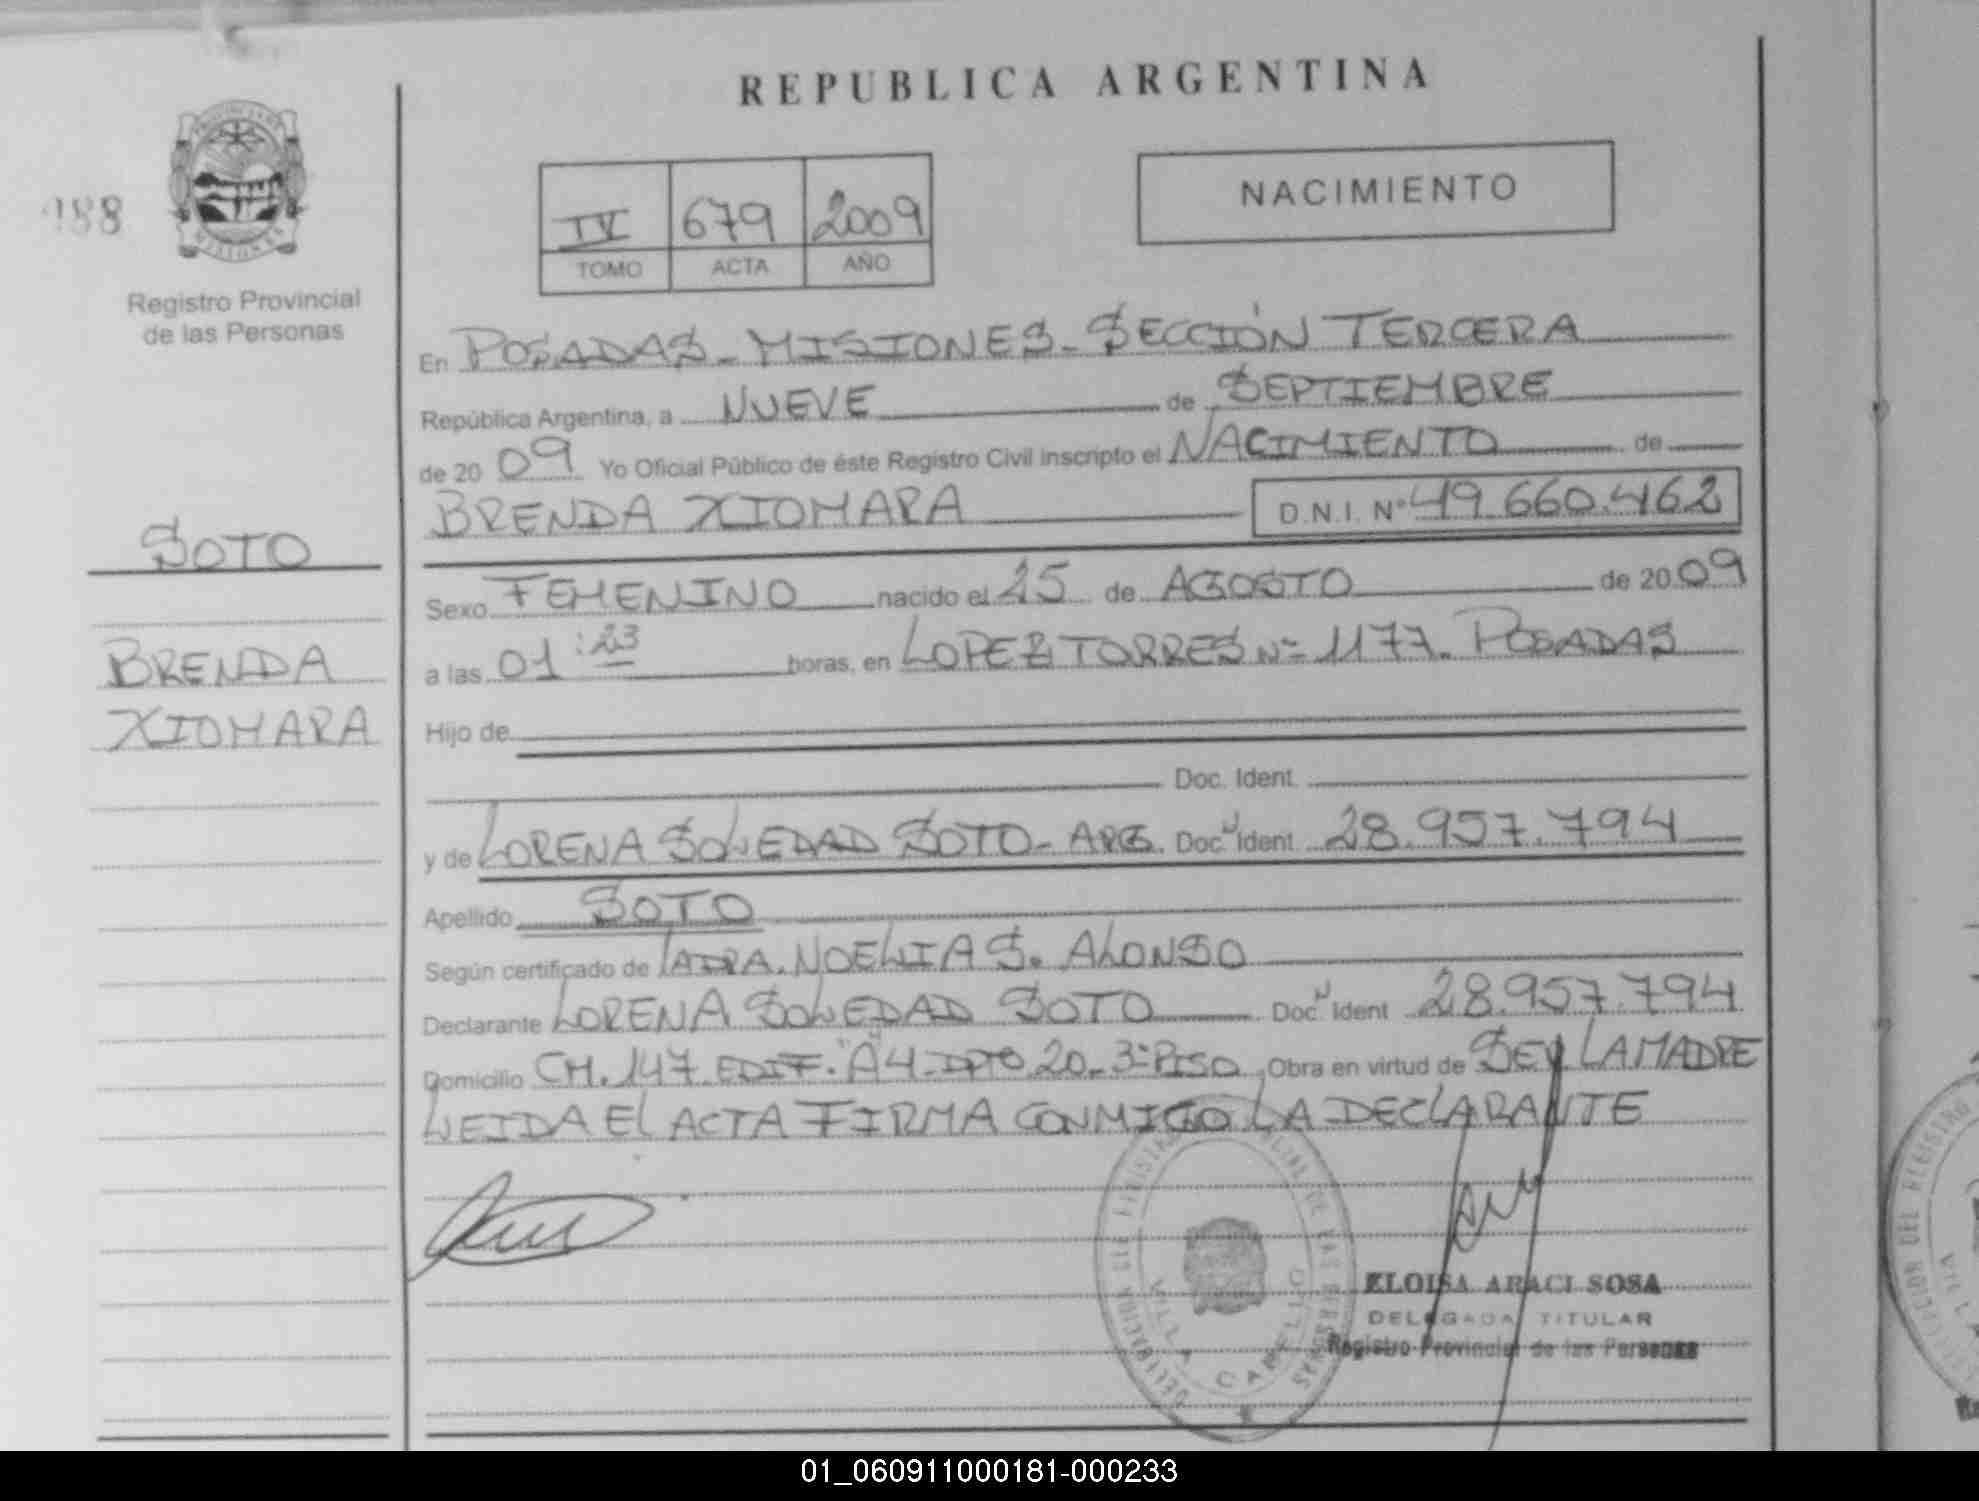 REPUBLICA ARGENTINA
188
NACIMIENTO
IV 679 2009
TOMO ACTA AÑO
Registro Provincial
de las Personas
En POSADAS - MISIONES - SECCIÓN TERCERA
República Argentina, a NUEVE de SEPTIEMBRE
de 20 09 Yo Oficial Público de éste Registro Civil inscripto el NACIMIENTO de
BRENDA XIOMARA D.N.I. Nº 49.660.462
SOTO
BRENDA
XIOMARA
Sexo FEMENINO nacido el 25 de AGOSTO de 20 09
a las 01:23 horas, en LOPEZ TORRES Nº 1177. POSADAS
Hijo de
Doc. Ident.
y de LORENA SOLEDAD SOTO - ARG. Doc. Ident. 28.957.794
Apellido SOTO
Según certificado de NOELIA S. ALONSO
Declarante LORENA SOLEDAD SOTO Doc. Ident 28.957.794
Domicilio CH. 147 EDIF. "A4" DPTO 20 - 3º PISO Obra en virtud de SER LA MADRE
LEIDA EL ACTA FIRMA CONMIGO LA DECLARANTE
VILLA CABELLO
ELOISA ARACI SOSA
DELEGADA TITULAR
Registro Provincial de las Personas
01_060911000181-000233